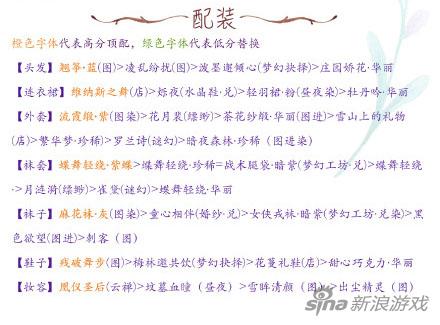 配装
橙色字体代表高分顶配，绿色字体代表低分替换
【头发】翘筝·蓝(图)>凌乱纷扰(图)>泼墨邂倾心(梦幻抉择)>庄园娇花·华丽
【连衣裙】维纳斯之舞(店)>烁夜(水晶鞋·兑)>轻羽裙·粉(昼夜染)>牡丹吟·华丽
【外套】流霞缎·紫(图染)>花月裳(缥缈)>茶花纱缎·华丽(图进)>雪山上的礼物
(店)>繁华梦·珍稀>罗兰诗(谜幻)>暗夜森林·珍稀（图进染）
【袜套】蝶舞轻绕·紫蝶>蝶舞轻绕·珍稀=战术腿袋·暗紫(梦幻工坊·兑)>蝶舞轻绕
·>月涟漪(缥缈)>雀黛(谜幻)>蝶舞轻绕·华丽
【袜子】麻花袜·灰(图染)>童心相伴(婚纱·兑)>女侠戎袜·暗紫(梦幻工坊·兑染)>黑
色欲望(图进)>刺客（图）
【鞋子】残破舞步(图)>梅林邀共饮(梦幻抉择)>花蔓礼鞋(店)>甜心巧克力·华丽
【妆容】凰仪圣后(云禅)>坟墓血瞳（昼夜）>雪眸清颜（图）>出尘精灵（图）
sina新浪游戏